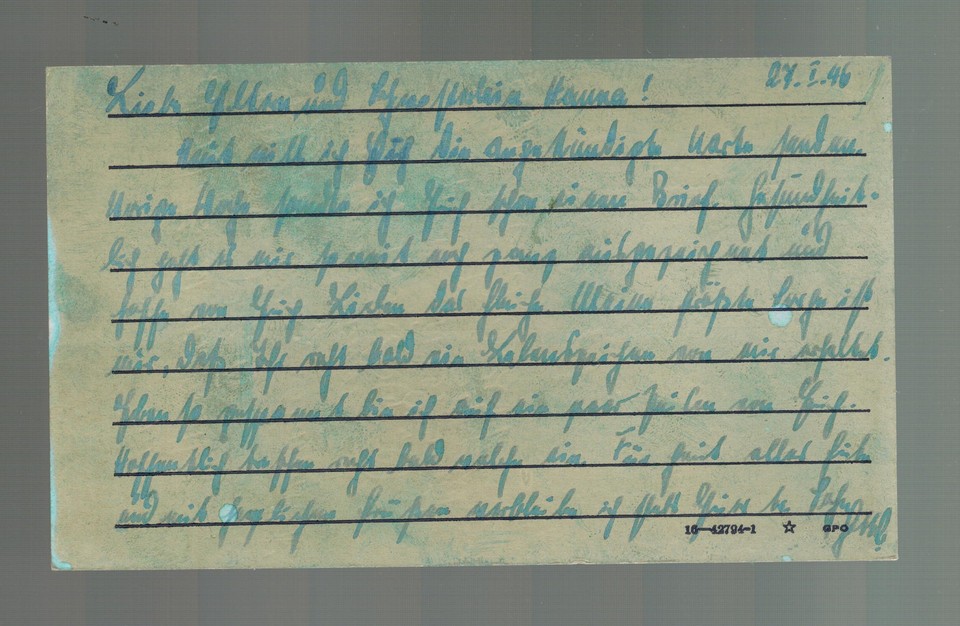 27. I. 46
Liebe Eltern und Schwesterlein Hanna!
Heut will ich Euch die angekündigte Karte senden.
Vorige Woche sandte ich Euch schon einen Brief. Gesundheit-
lich geht es mir soweit noch ganz ausgezeichnet und
hoffe von Euch Lieben das Gleiche. Meine größte Sorge ist
nur, daß Ihr recht bald ein Lebenszeichen von mir erhaltet.
Ebenso gespannt bin ich auf ein paar Zeilen von Euch.
Hoffentlich treffen recht bald welche ein. Für heut alles Gute
und mit herzlichen Grüßen verbleibe ich stets Euer Sohn
16—42794-1 ☆ GPO